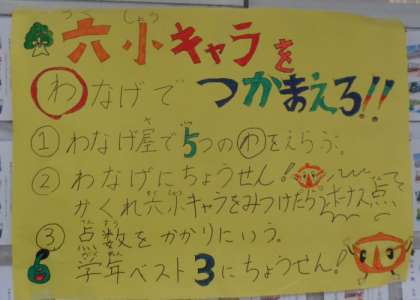 六小キャラを
わなげで つかまえろ!!
① わなげ屋で5つのわをえらぶ。
② わなげにちょうせん!
かくれ六小キャラをみつけたらボーナス点
③ 点数をかかりにいう。
学年ベスト3にちょうせん!